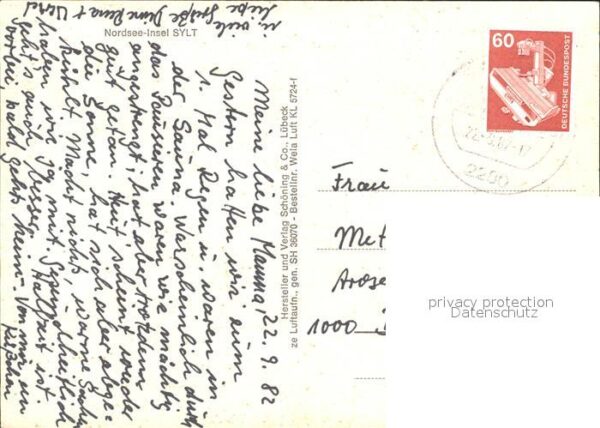 Nordsee-Insel SYLT
Meine liebe Mamma, 22.9.82
Gestern hatten wir zum
1. Mal Regen u. waren in
der Sauna. Warscheinlich durch
das Pausieren waren wir mächtig
angestrengt, hat aber trotzdem
gut getan. Heut scheint wieder
die Sonne, hat sich aber abge-
kühlt. Macht nichts, warme Sachen
haben wir ja mit. Gesundheitlich
geht's auch besser. Halbzeit ist
vorbei, bald geht's heim. Von mir ein
u. viele
liebe Grüße Deine
Hersteller und Verlag Schöning & Co., Lübeck
ze Luftaufn., gen. SH 36070 - Bestellnr. Wela Luft KL 5724-f
60
DEUTSCHE BUNDESPOST
2280
Frau
Met
Arose
1000
privacy protection
Datenschutz